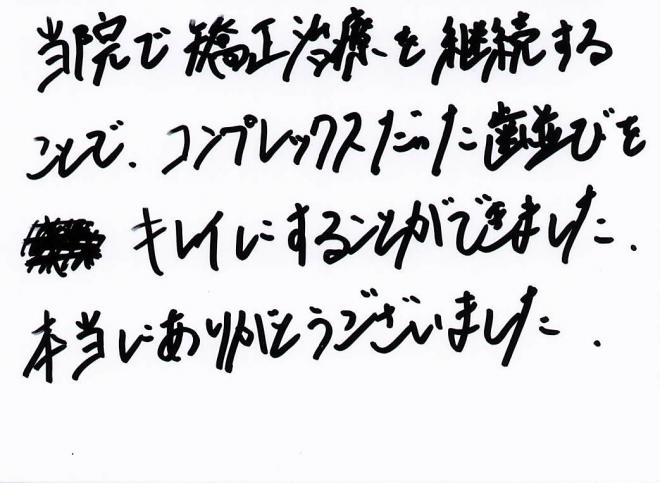 当院で矯正治療を継続する
ことで、コンプレックスだった歯並びを
キレイにすることができました.
本当にありがとうございました.